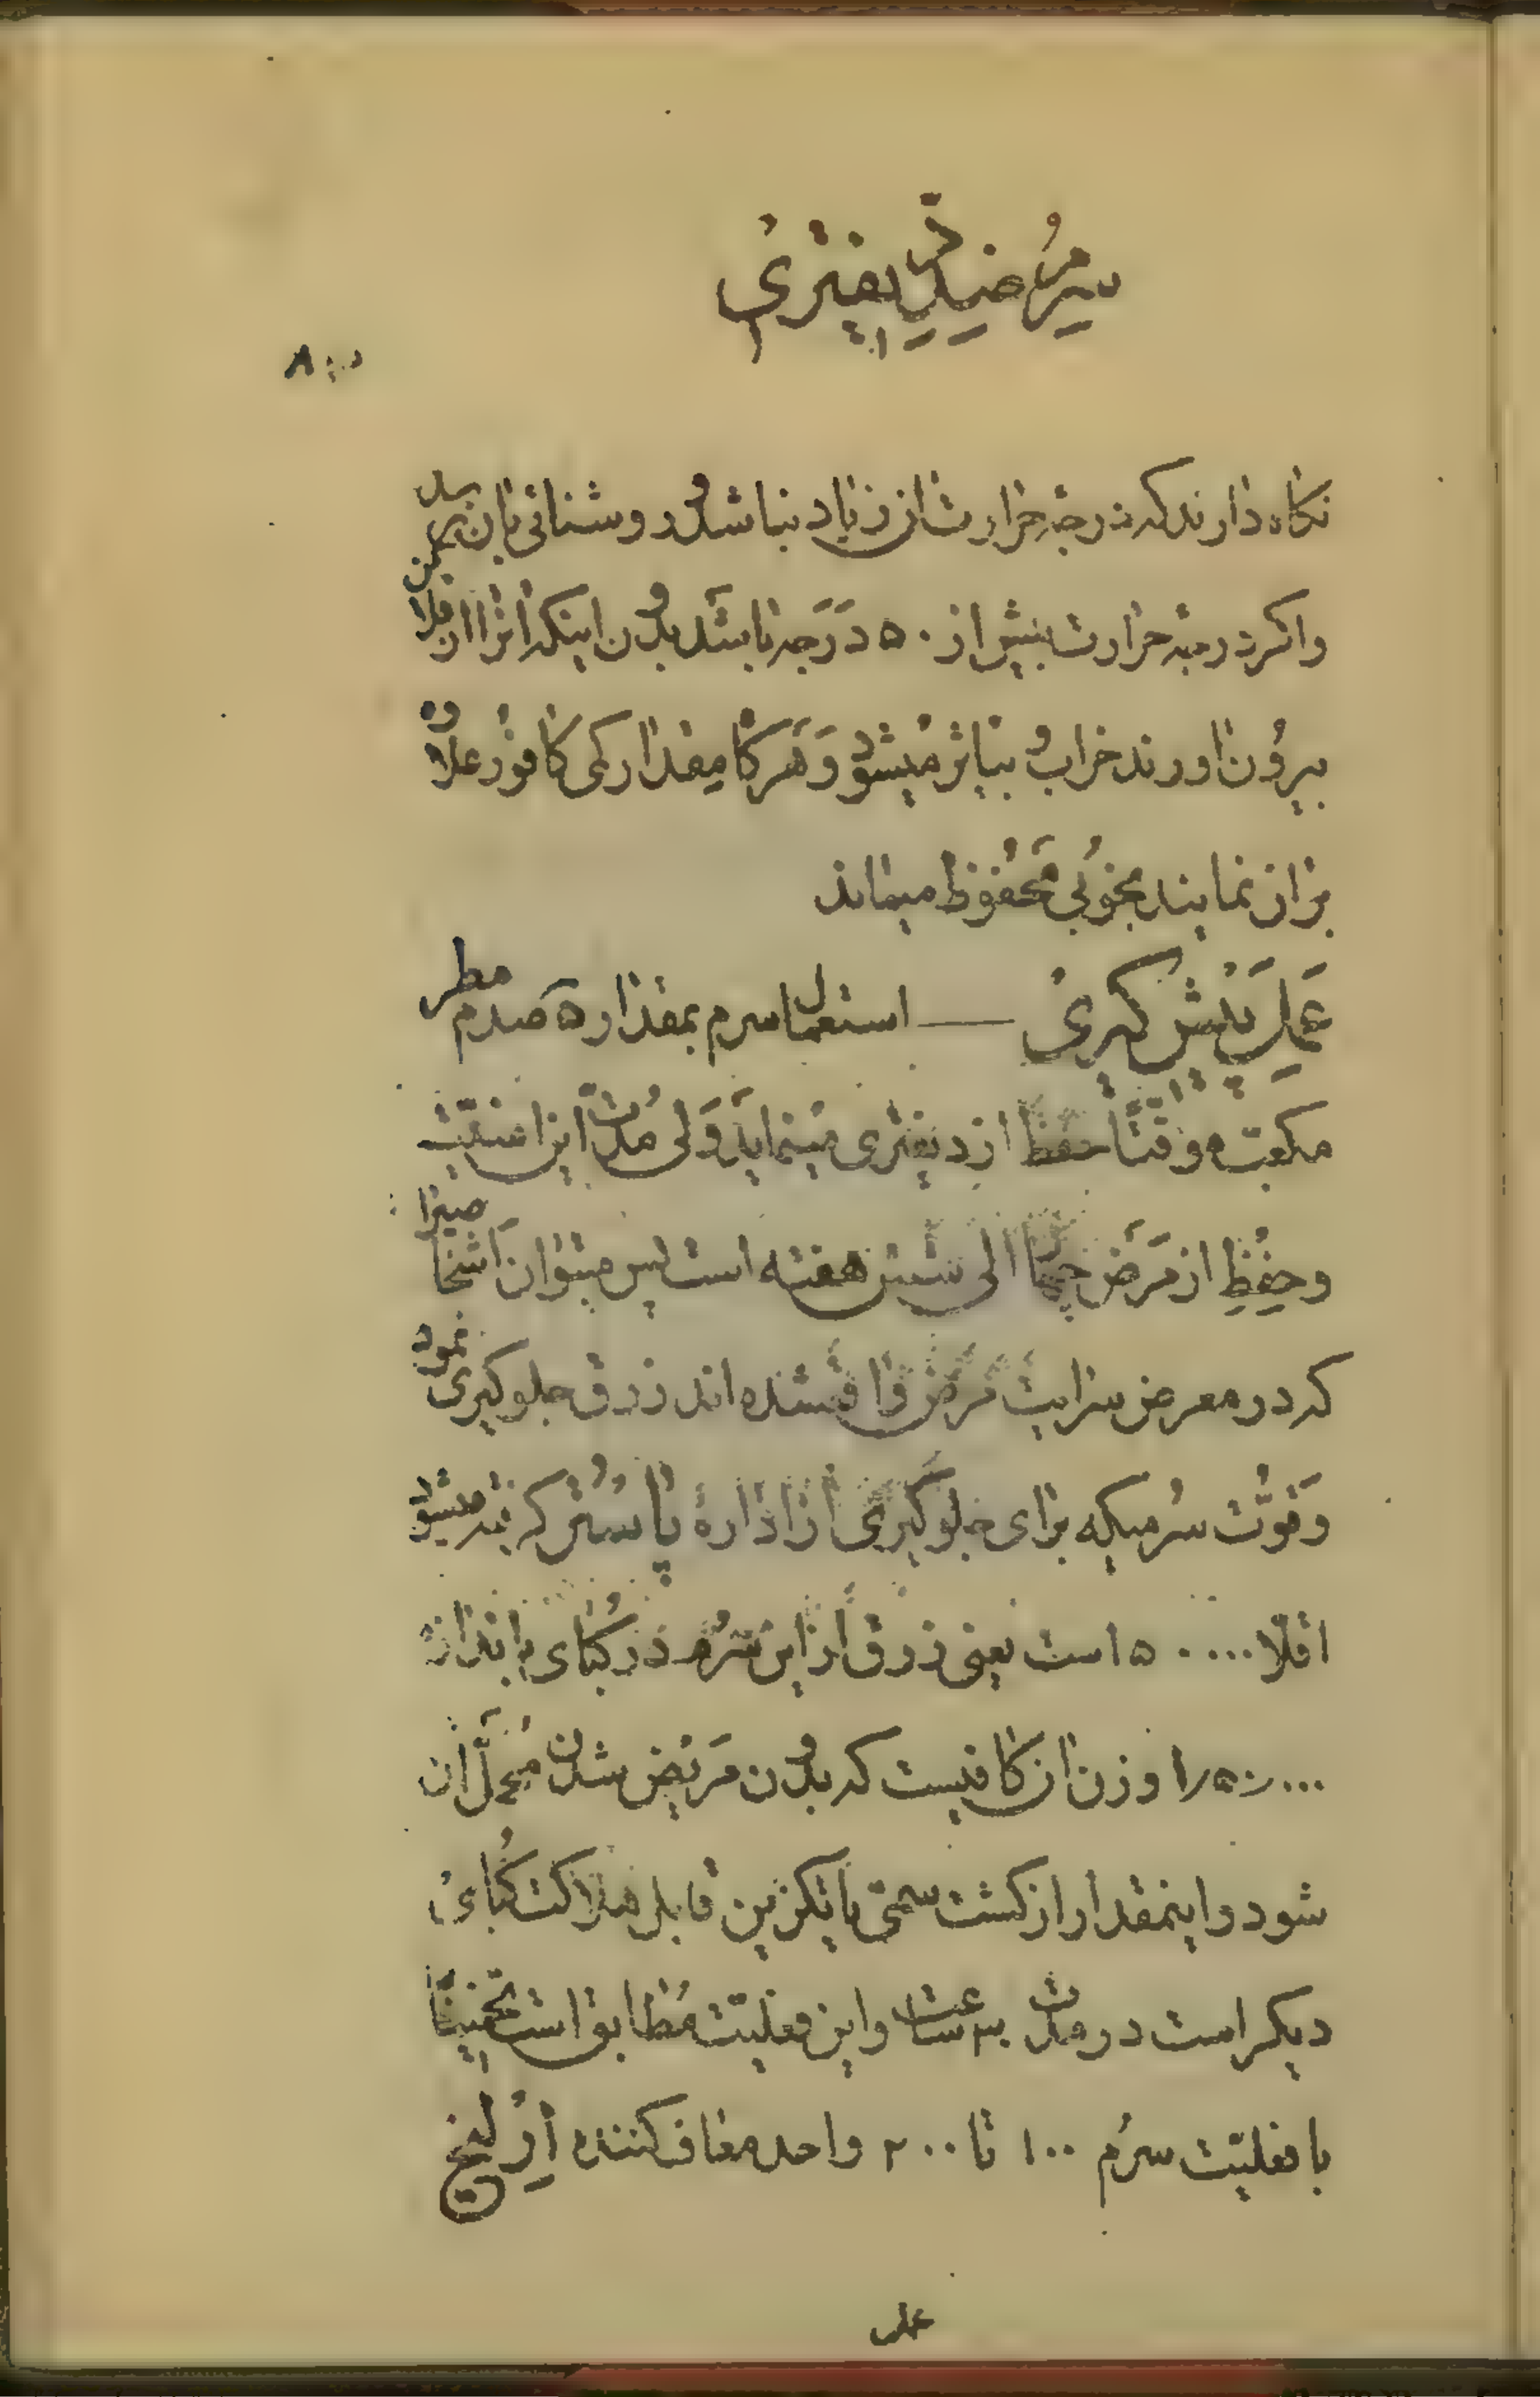 سِرُمِ ضِدِّ دیفتری
نکاه دارند که درجهٔ حرارت ان زیاد نباشد و روشنائی بان نرسد
واکر درجهٔ حرارت بیش از ۵۰ دَرَجه باشد بدون اینکه انرا از
بیرُون اورند خراب و بیاثر میشود وَ هَر کاه مِقدار کمی کافور علاوه
بر ان نمایند بخُوبی مَحفُوظ میماند
عَمَلِ پیش کیری — استعمال سرم بمقدار ۵ صدم
مکعب موقتاً حفظ از دیفتری مینماید وَلی مُدّت این امنیّت
و حِفظِ از مَرَض چهار الی شش هفته است پس میتوان اشخاصیرا
که در معرض سرایت مَرَض واقع شده اند زرق جلوکیری نمود
وَ قوّت سُرمیکه برای جلوکیری از ادارهٔ پاستُر کرفته میشود
اقلاً ۵۰۰۰۰ است یعنی زرق از این سرُم در کبای باندازهٔ
وزن ان کافیست که بدون مَریض شدن مُتحمل ان
شود و اینمقدار از کشت سمّی با تکزین قابل هلاکت کبای
دیکر است در مدت ساعت و این فعلیّت مُطابق است تخمیناً
با فعلیّت سرُم ۱۰۰ تا ۲۰۰ واحد معاف کننده اِرلیخ
عمل